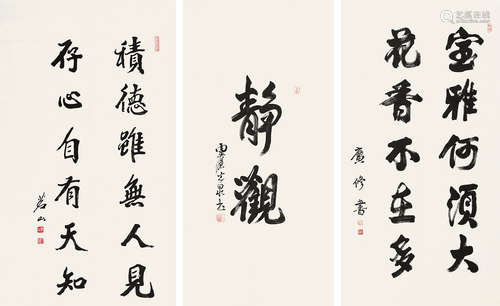 室雅何須大
花香不在多
廣修書
靜觀
積德雖無人見
存心自有天知
茗山